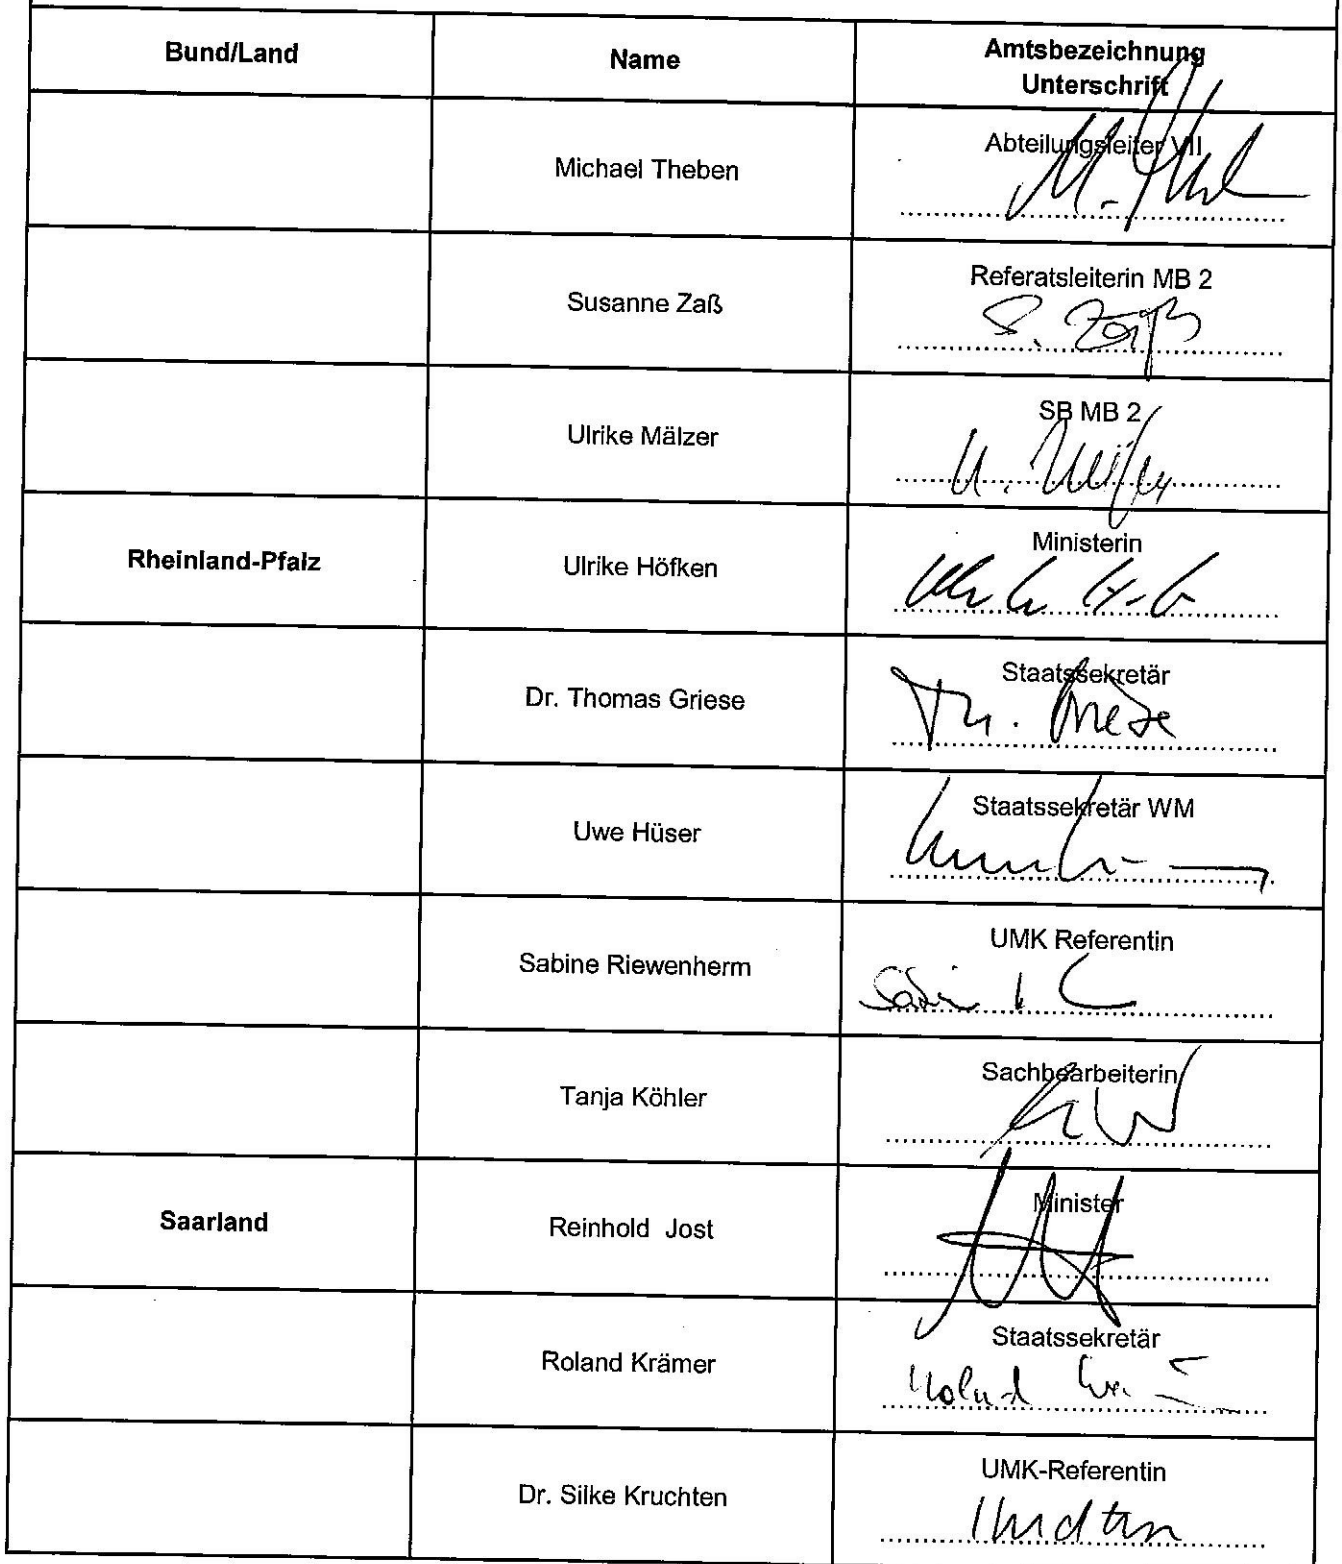 Bund/Land
Name
Amtsbezeichnung
Unterschrift
Michael Theben
Abteilungsleiter VII
Susanne Zaß
Referatsleiterin MB 2
S. Zaß
Ulrike Mälzer
SB MB 2
Rheinland-Pfalz
Ulrike Höfken
Ministerin
Dr. Thomas Griese
Staatssekretär
Th. Griese
Uwe Hüser
Staatssekretär WM
Sabine Riewenherm
UMK Referentin
Tanja Köhler
Sachbearbeiterin
Saarland
Reinhold Jost
Minister
Roland Krämer
Staatssekretär
Dr. Silke Kruchten
UMK-Referentin